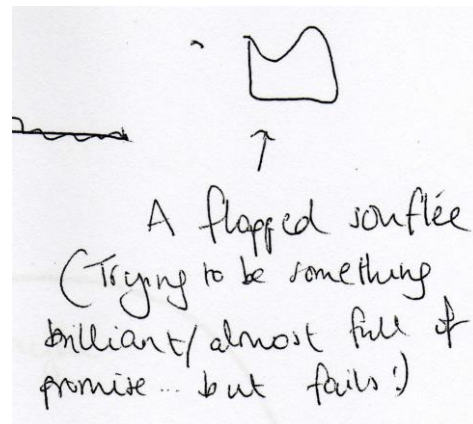 A flopped souflée
(Trying to be something
brilliant/almost full of
promise... but fails!)